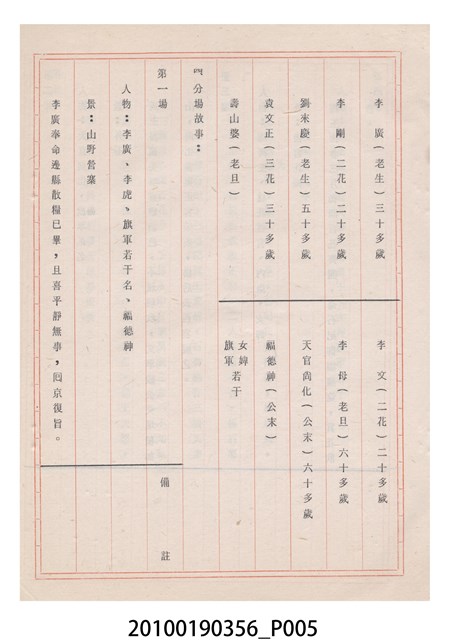 李　廣（老生）三十多歲
李　剛（二花）二十多歲
劉來慶（老生）五十多歲
袁文正（三花）三十多歲
壽山婆（老旦）
李　文（二花）二十多歲
李　母（老旦）六十多歲
天官尚化（公末）六十多歲
福德神（公末）
女婢
旗軍若干
四、分場故事：
第一場
備　註
人物：李廣、李虎、旗軍若干名、福德神
景：山野營寨
李廣奉命邊縣散糧已畢，且喜平靜無事，囘京復旨。
20100190356_P005